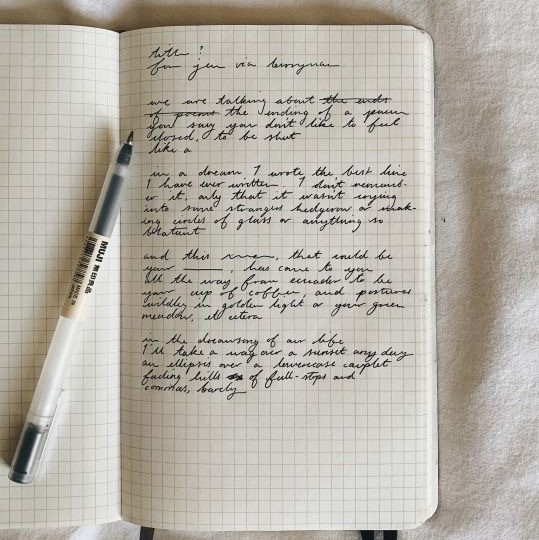 title?
for jen via berryman
we are talking about the ends
of poems the ending of a poem
you say you don't like to feel
closed, to be shut
like a
in a dream I wrote the best line
I have ever written. I don't rememb-
er it, only that it wasn't
into some strangers hedgerow or mak-
ing circles of glass or anything so
blatant
and this, that could be
your ____, has come to you
all the way from ecuador to be
your cup of coffee and postures
wildly in golden light or your green
meadow, et cetera
in the of our life
I'll take a way over a sunset any day
an ellipsis over a lowercase
fading hills of full-stops and
commas, barely
MUJI 無印良品